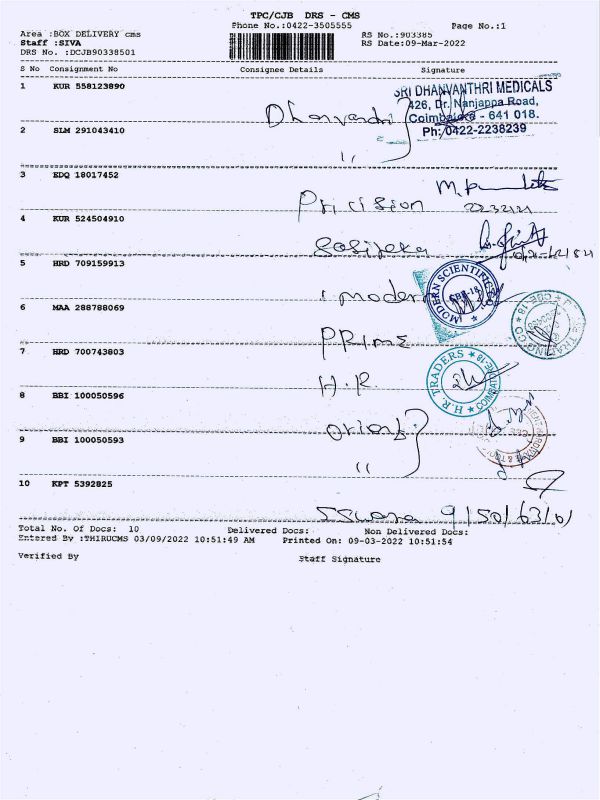 TPC/CJB DRS - CMS
Phone No.:0422-3505555 Page No.:1
Area :BOX DELIVERY cms RS No.:903385
Staff :SIVA RS Date:09-Mar-2022
DRS No. :DCJB90338501
S No Consignment No Consignee Details Signature
1 KUR 558123890
SRI DHANVANTHRI MEDICALS
426, Dr. Nanjappa Road,
Coimbatore - 641 018.
Ph: 0422-2238239
2 SLM 291043410
"
3 EDQ 18017452
Pricision
4 KUR 524504910
5 HRD 709159913
modern MODERN SCIENTIFIC CBE-18
6 MAA 288788069
PRIME TRADING CO CBE-18
7 HRD 700743803
H.R H.R. TRADERS COIMBATORE-18
8 BBI 100050596
orient
9 BBI 100050593
"
10 KPT 5392825
9/50/63/01
Total No. Of Docs: 10 Delivered Docs: Non Delivered Docs:
Entered By :THIRUCMS 03/09/2022 10:51:49 AM Printed On: 09-03-2022 10:51:54
Verified By Staff Signature